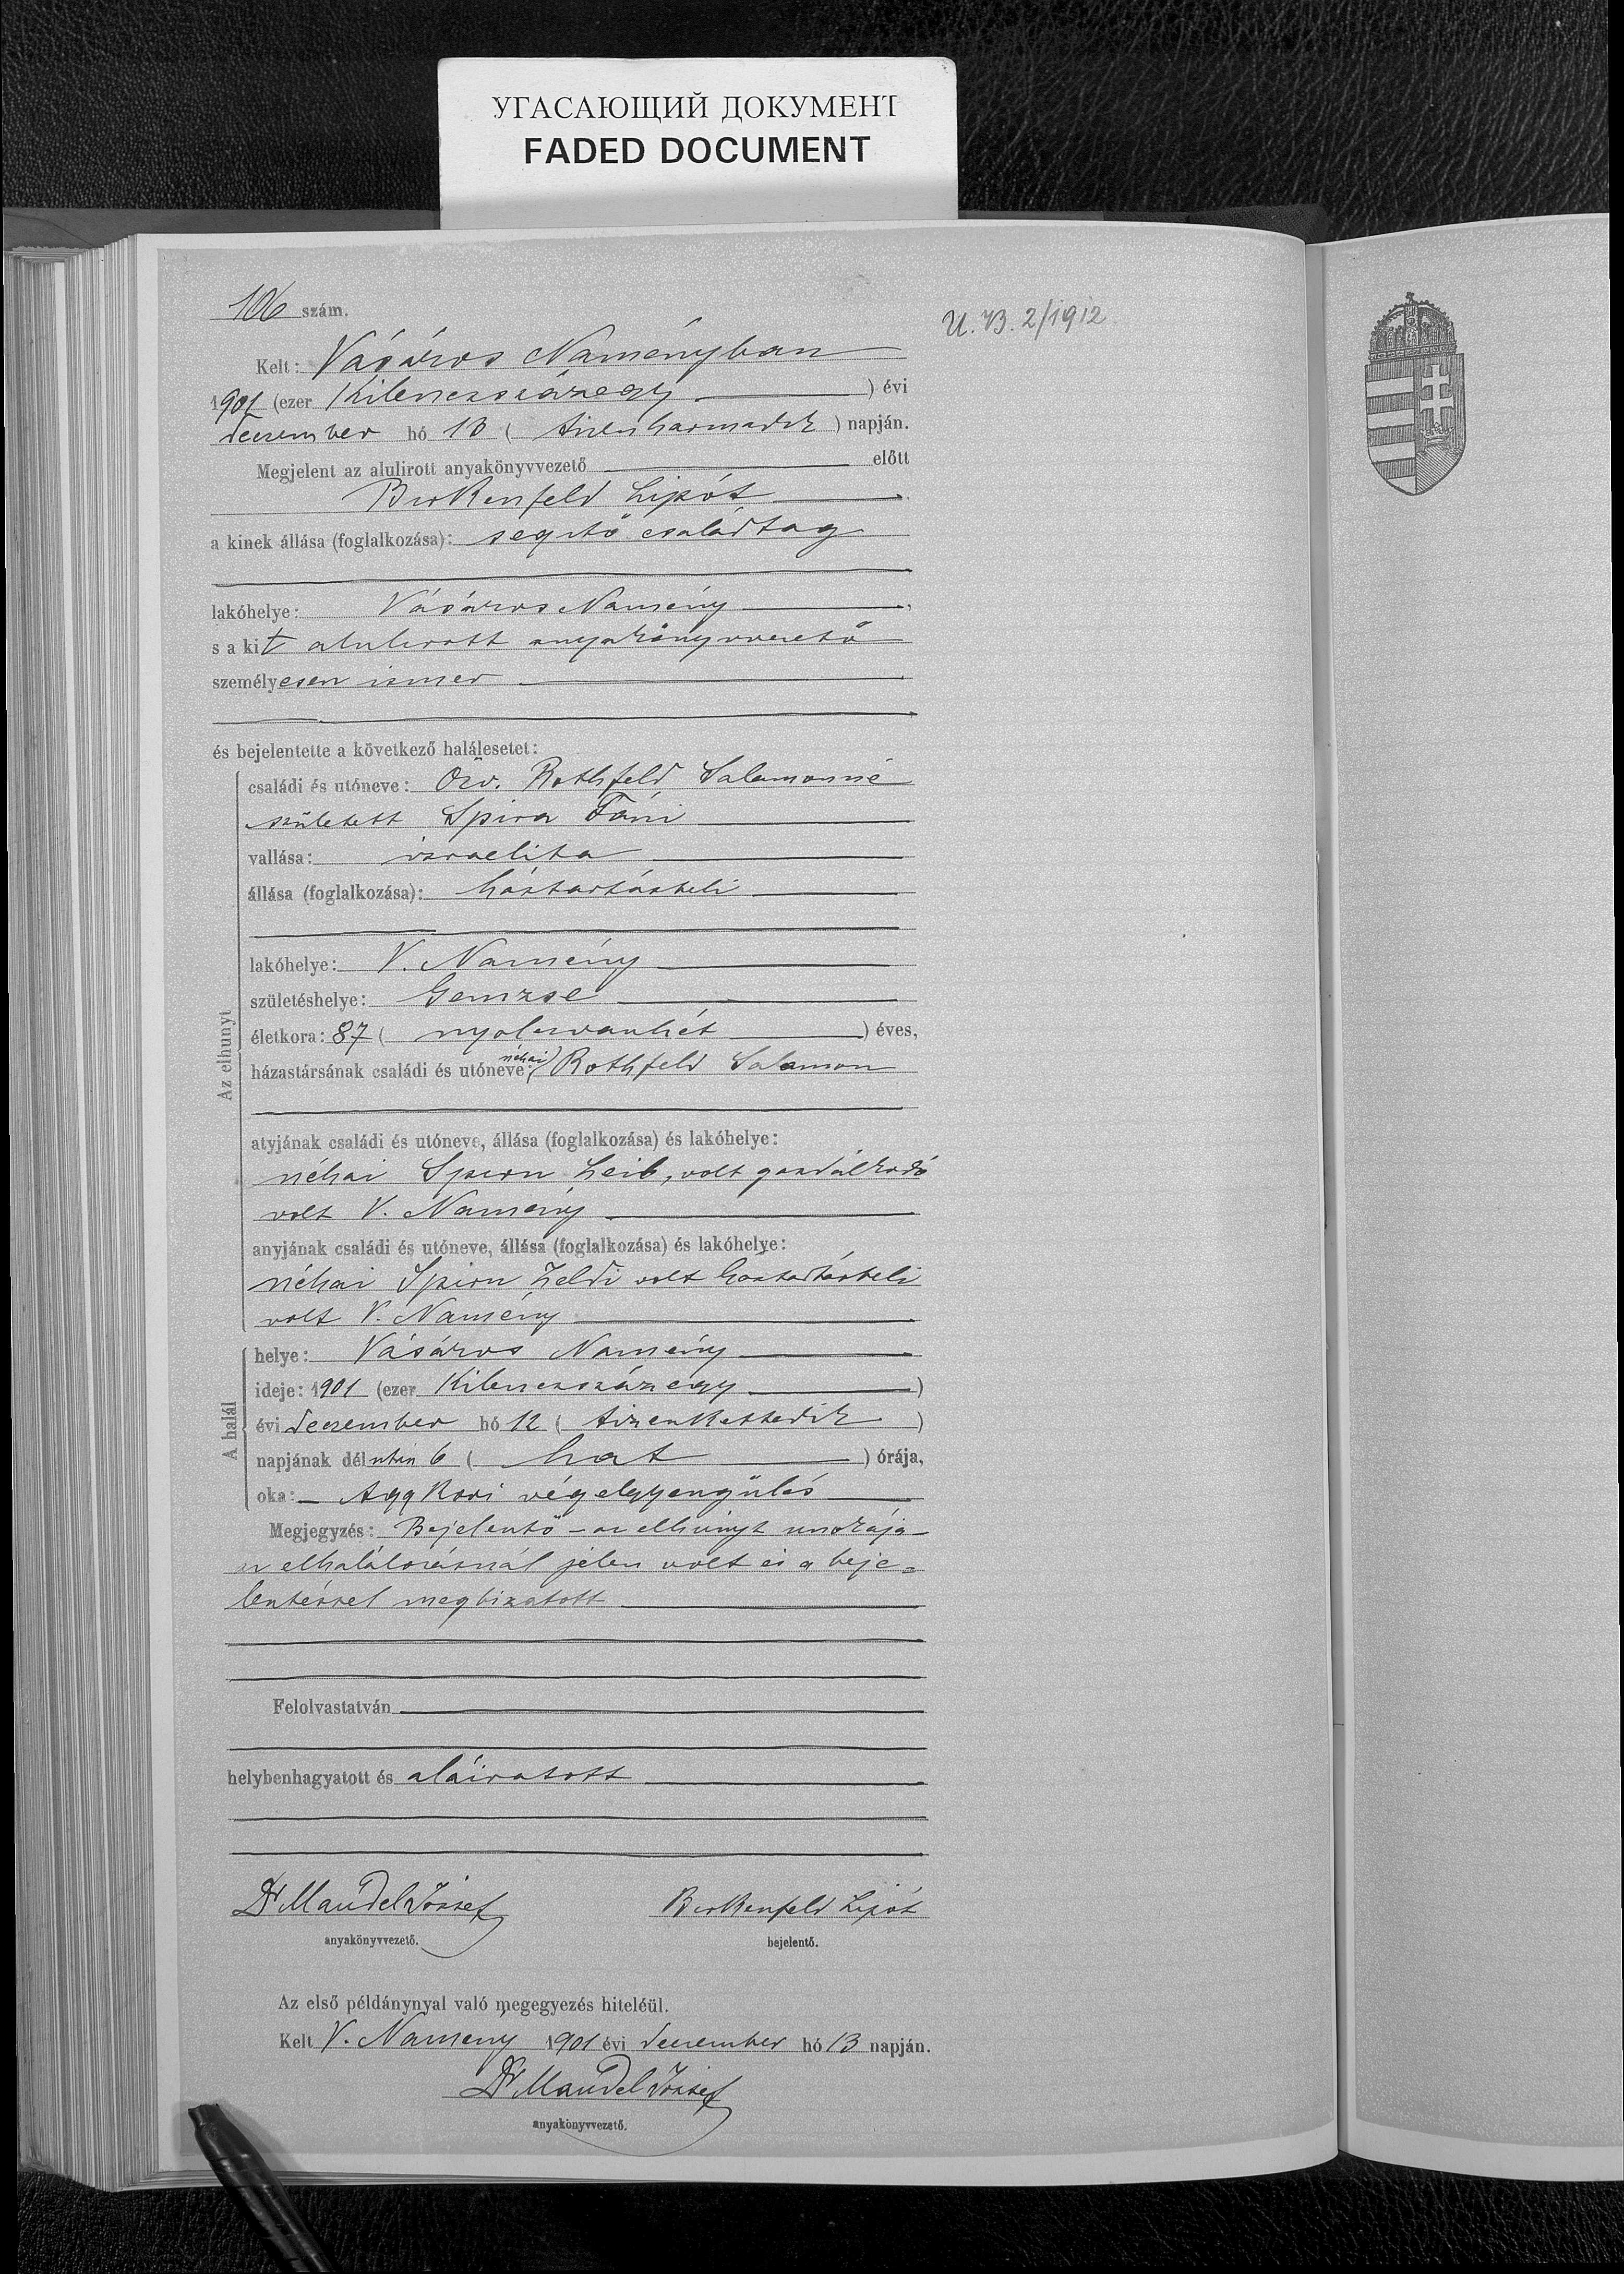 УГАСАЮЩИЙ ДОКУМЕНТ
FADED DOCUMENT
106 szám.
U.B. 2/1912
Kelt: Vásáros Naményban
1901 (ezer Kilenczszázegy) évi
deczember hó 13 (tizenharmadik) napján.
Megjelent az alulirott anyakönyvvezető előtt
Birkenfeld Lipót
a kinek állása (foglalkozása): segitő családtag
lakóhelye: Vásáros Namény,
s a kit alulirott anyakönyvvezető
személyesen ismer
és bejelentette a következő halálesetet:
Az elhunyt
családi és utóneve: Özv. Rothfeld Salamonné
született Spira Fáni
vallása: izraelita
állása (foglalkozása): háztartásbeli
lakóhelye: V. Namény
születéshelye: Gemzse
életkora: 87 (nyolczvanhét) éves,
házastársának családi és utóneve: néhai Rothfeld Salamon
atyjának családi és utóneve, állása (foglalkozása) és lakóhelye:
néhai Leib, volt gazdálkodó
volt V. Namény
anyjának családi és utóneve, állása (foglalkozása) és lakóhelye:
néhai Zeldi volt háztartásbeli
volt V. Namény
A halál
helye: Vásáros Namény
ideje: 1901 (ezer Kilenczszázegy)
évi deczember hó 12 (tizenkettedik)
napjának délután 6 (hat) órája,
oka: Aggkori végelgyengülés
Megjegyzés: Bejelentő – az elhunyt unokája –
az elhalálozásnál jelen volt és a beje=
lentéssel megbizatott
Felolvastatván
helybenhagyatott és aláiratott
Dr Mandel József
anyakönyvvezető.
Birkenfeld Lipót
bejelentő.
Az első példánynyal való megegyezés hiteléül.
Kelt V. Namény 1901 évi deczember hó 13 napján.
Dr Mandel József
anyakönyvvezető.